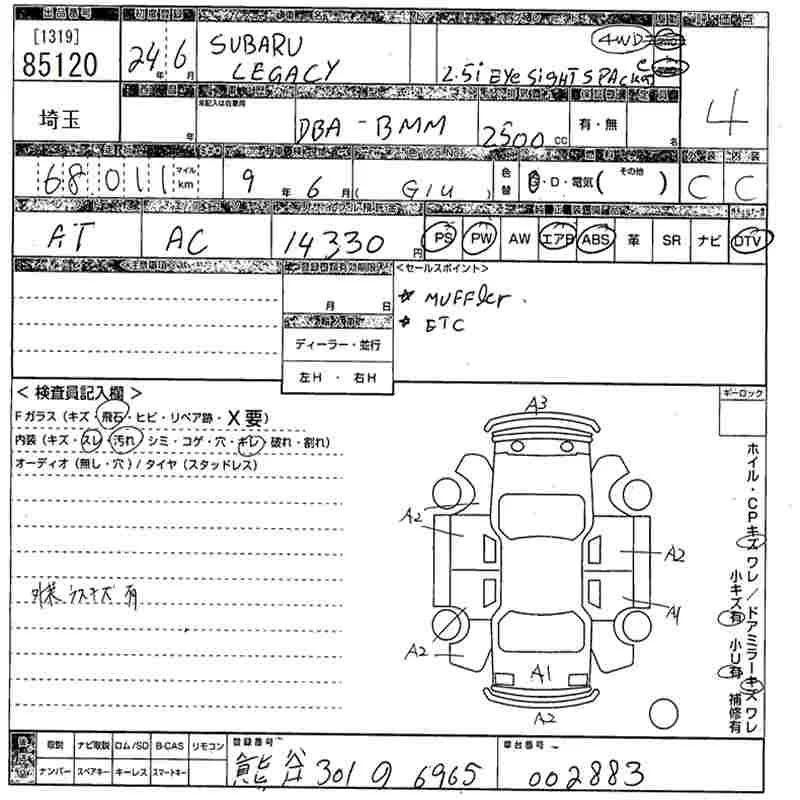 出品番号
[1319]
85120
24年 6月
SUBARU
LEGACY
4WD
2.5i EYE SIGHT S PACKAGE
4
埼玉
年
未記入は自家用
DBA - BMM
2500 cc
有・無
名
68,011
マイル
km
9年 6月
( G1U )
色替
・D・電気 ( その他 )
C C
AT
AC
14330 円
PS PW AW エアB ABS 革 SR ナビ DTV
月 日
ディーラー・並行
左H ・ 右H
<セールスポイント>
* MUFFler.
* ETC
< 検査員記入欄 >
Fガラス (キズ・飛石・ヒビ・リペア跡・X要)
内装 (キズ・スレ・汚れ・シミ・コゲ・穴・キレ・破れ・割れ)
オーディオ (無し・穴) / タイヤ (スタッドレス)
外装 ウスキズ 有
A3
A2
A2
A1
A2
A1
A2
キーロック
ホイル・CPキズ ワレ / ドアミラーキズ ワレ
小キズ有 小U有 補修有
取説 ナビ取説 ロム/SD B-CAS リモコン
ナンバー スペアキー キーレス スマートキー
登録番号
熊谷 301 の 6965
車台番号
002883